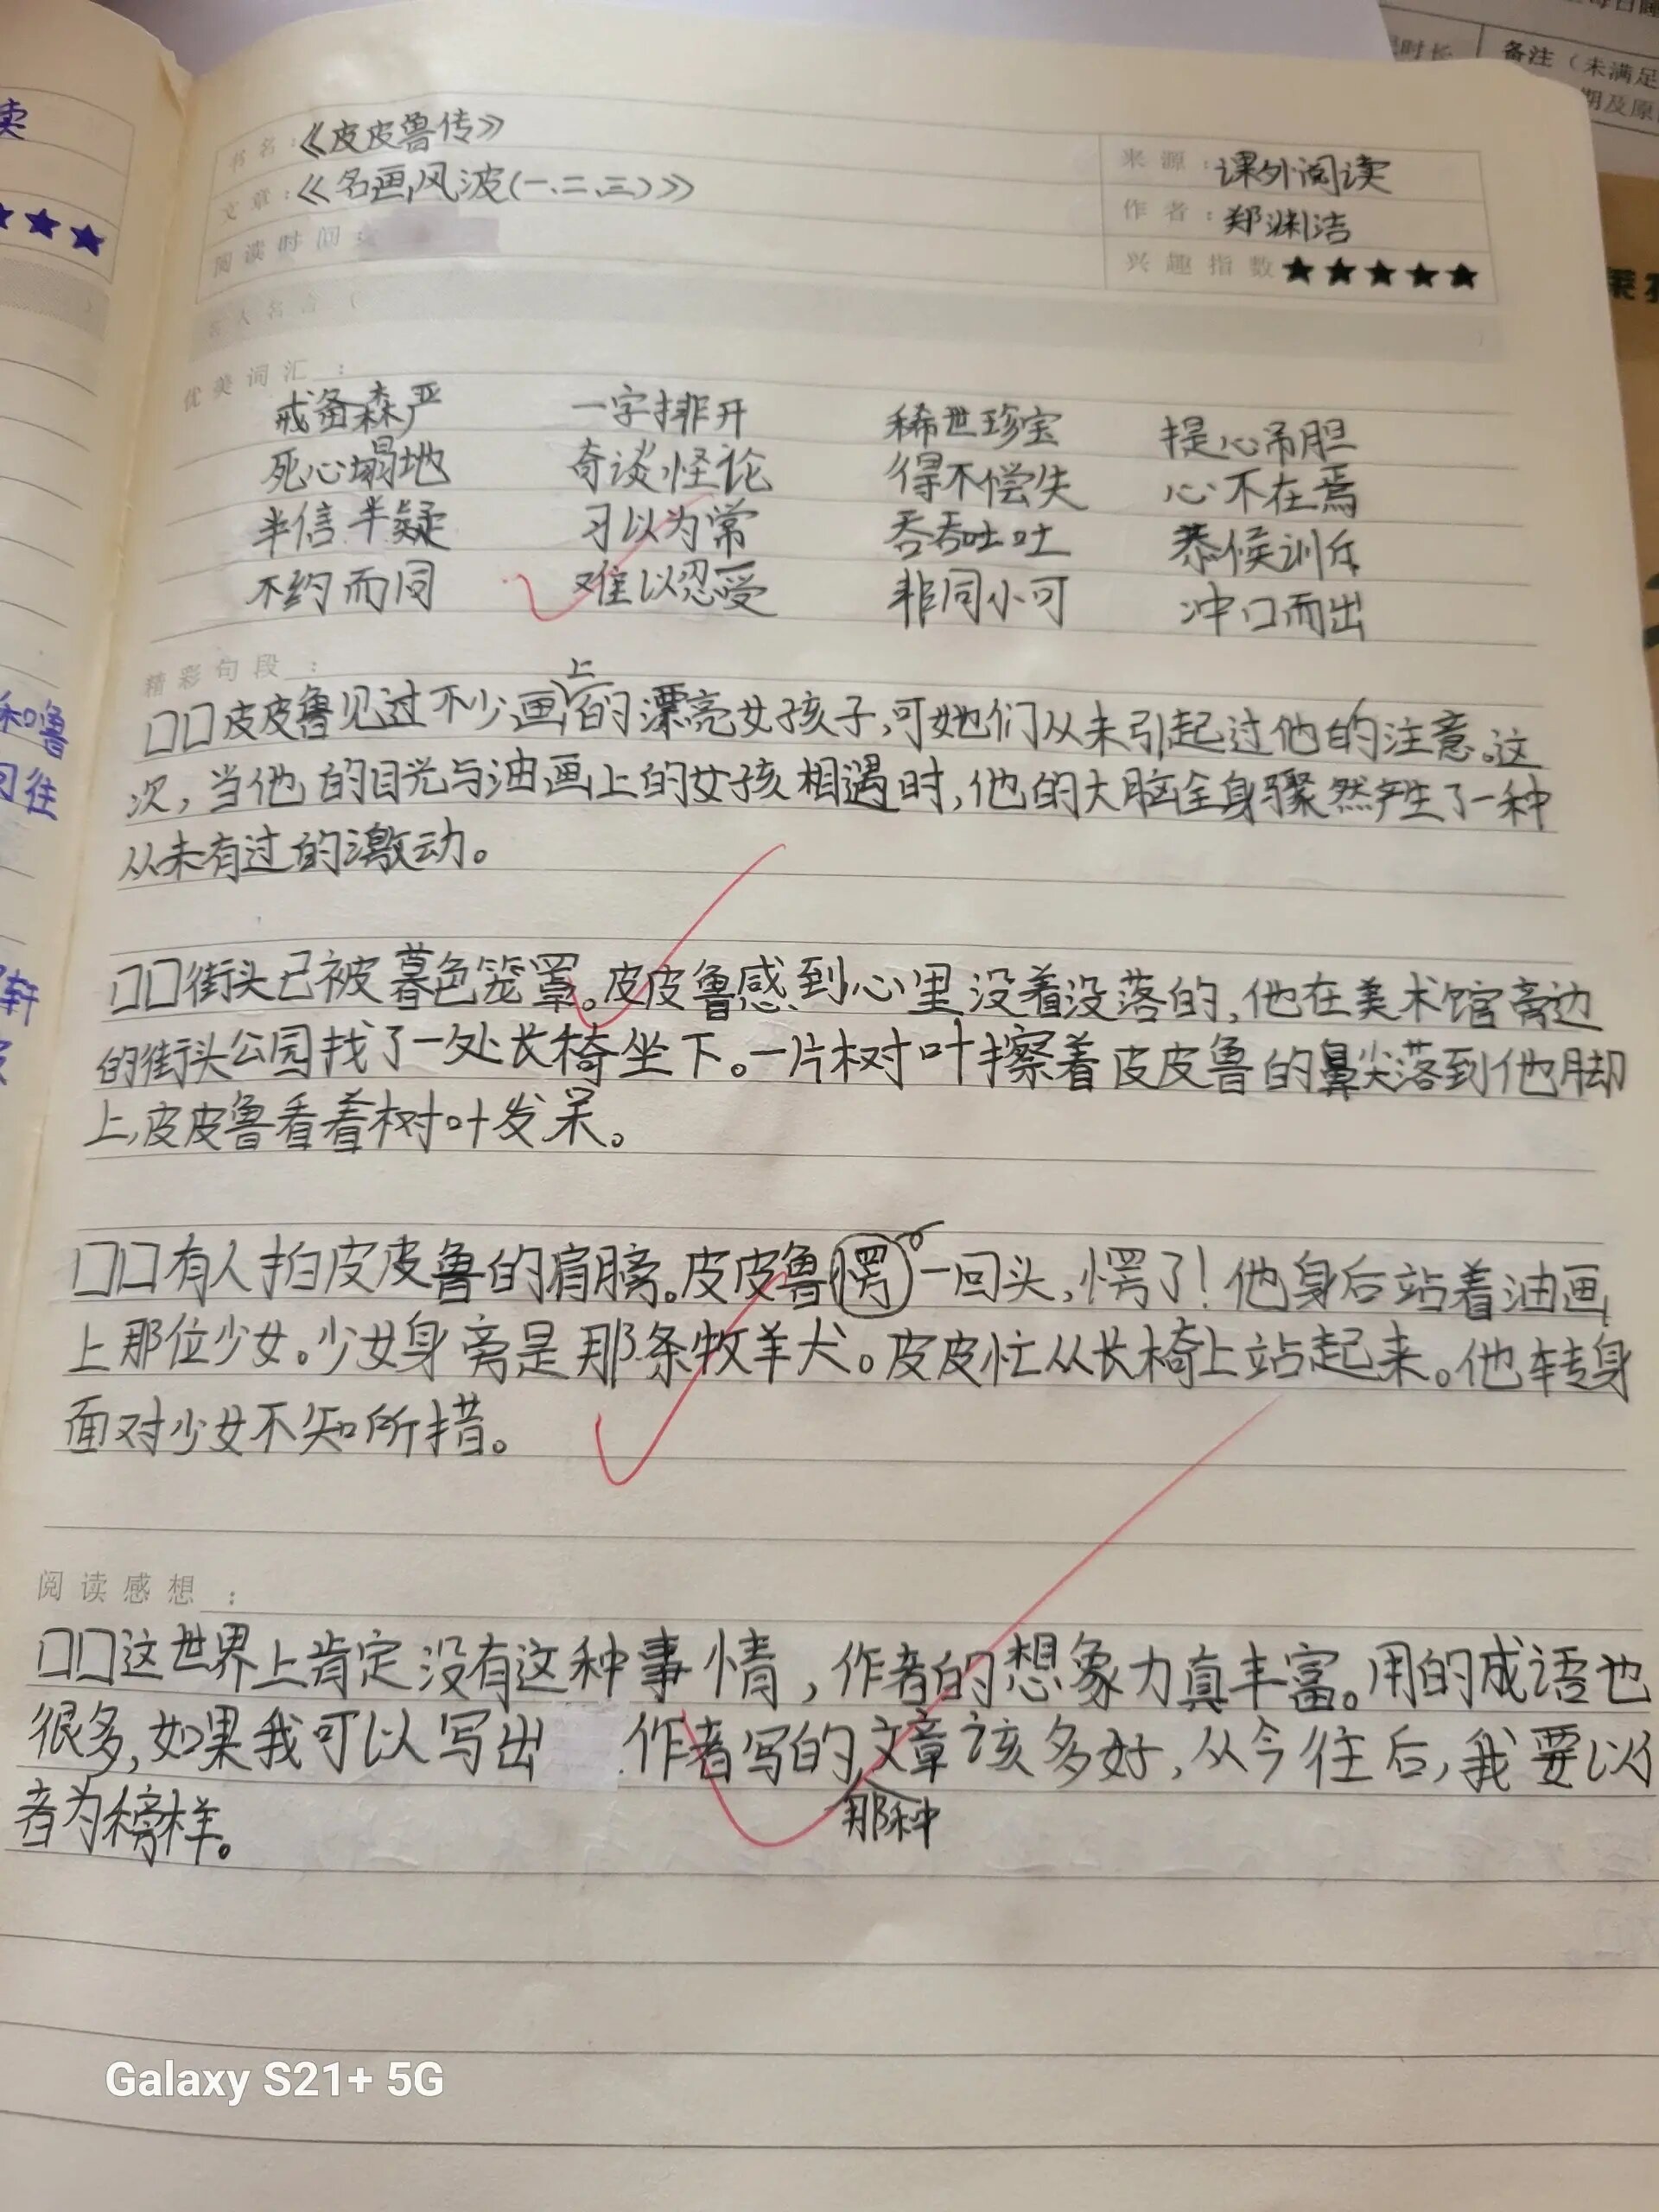 书名：《皮皮鲁传》
来源：课外阅读
文章：《名画风波（一、二、三）》
作者：郑渊洁
阅读时间：
兴趣指数★★★★★
名人名言（ ）
优美词汇：
戒备森严 一字排开 稀世珍宝 提心吊胆
死心塌地 奇谈怪论 得不偿失 心不在焉
半信半疑 习以为常 吞吞吐吐 恭候训斥
不约而同 难以忍受 非同小可 冲口而出
精彩句段：
口口皮皮鲁见过不少画上的漂亮女孩子，可她们从未引起过他的注意。这
次，当他的目光与油画上的女孩相遇时，他的大脑全身骤然产生了一种
从未有过的激动。
口口街头已被暮色笼罩。皮皮鲁感到心里没着没落的，他在美术馆旁边
的街头公园找了一处长椅坐下。一片树叶擦着皮皮鲁的鼻尖落到他脚
上，皮皮鲁看着树叶发呆。
口口有人拍皮皮鲁的肩膀。皮皮鲁愕一回头，愕了！他身后站着油画
上那位少女。少女身旁是那条牧羊犬。皮皮忙从长椅上站起来。他转身
面对少女不知所措。
阅读感想：
口口这世界上肯定没有这种事情，作者的想象力真丰富。用的成语也
很多，如果我可以写出作者写的那种文章该多好，从今往后，我要以
者为榜样。
Galaxy S21+ 5G
卖
★★★
和噜
往
轩
时长
备注（未满足
期及原